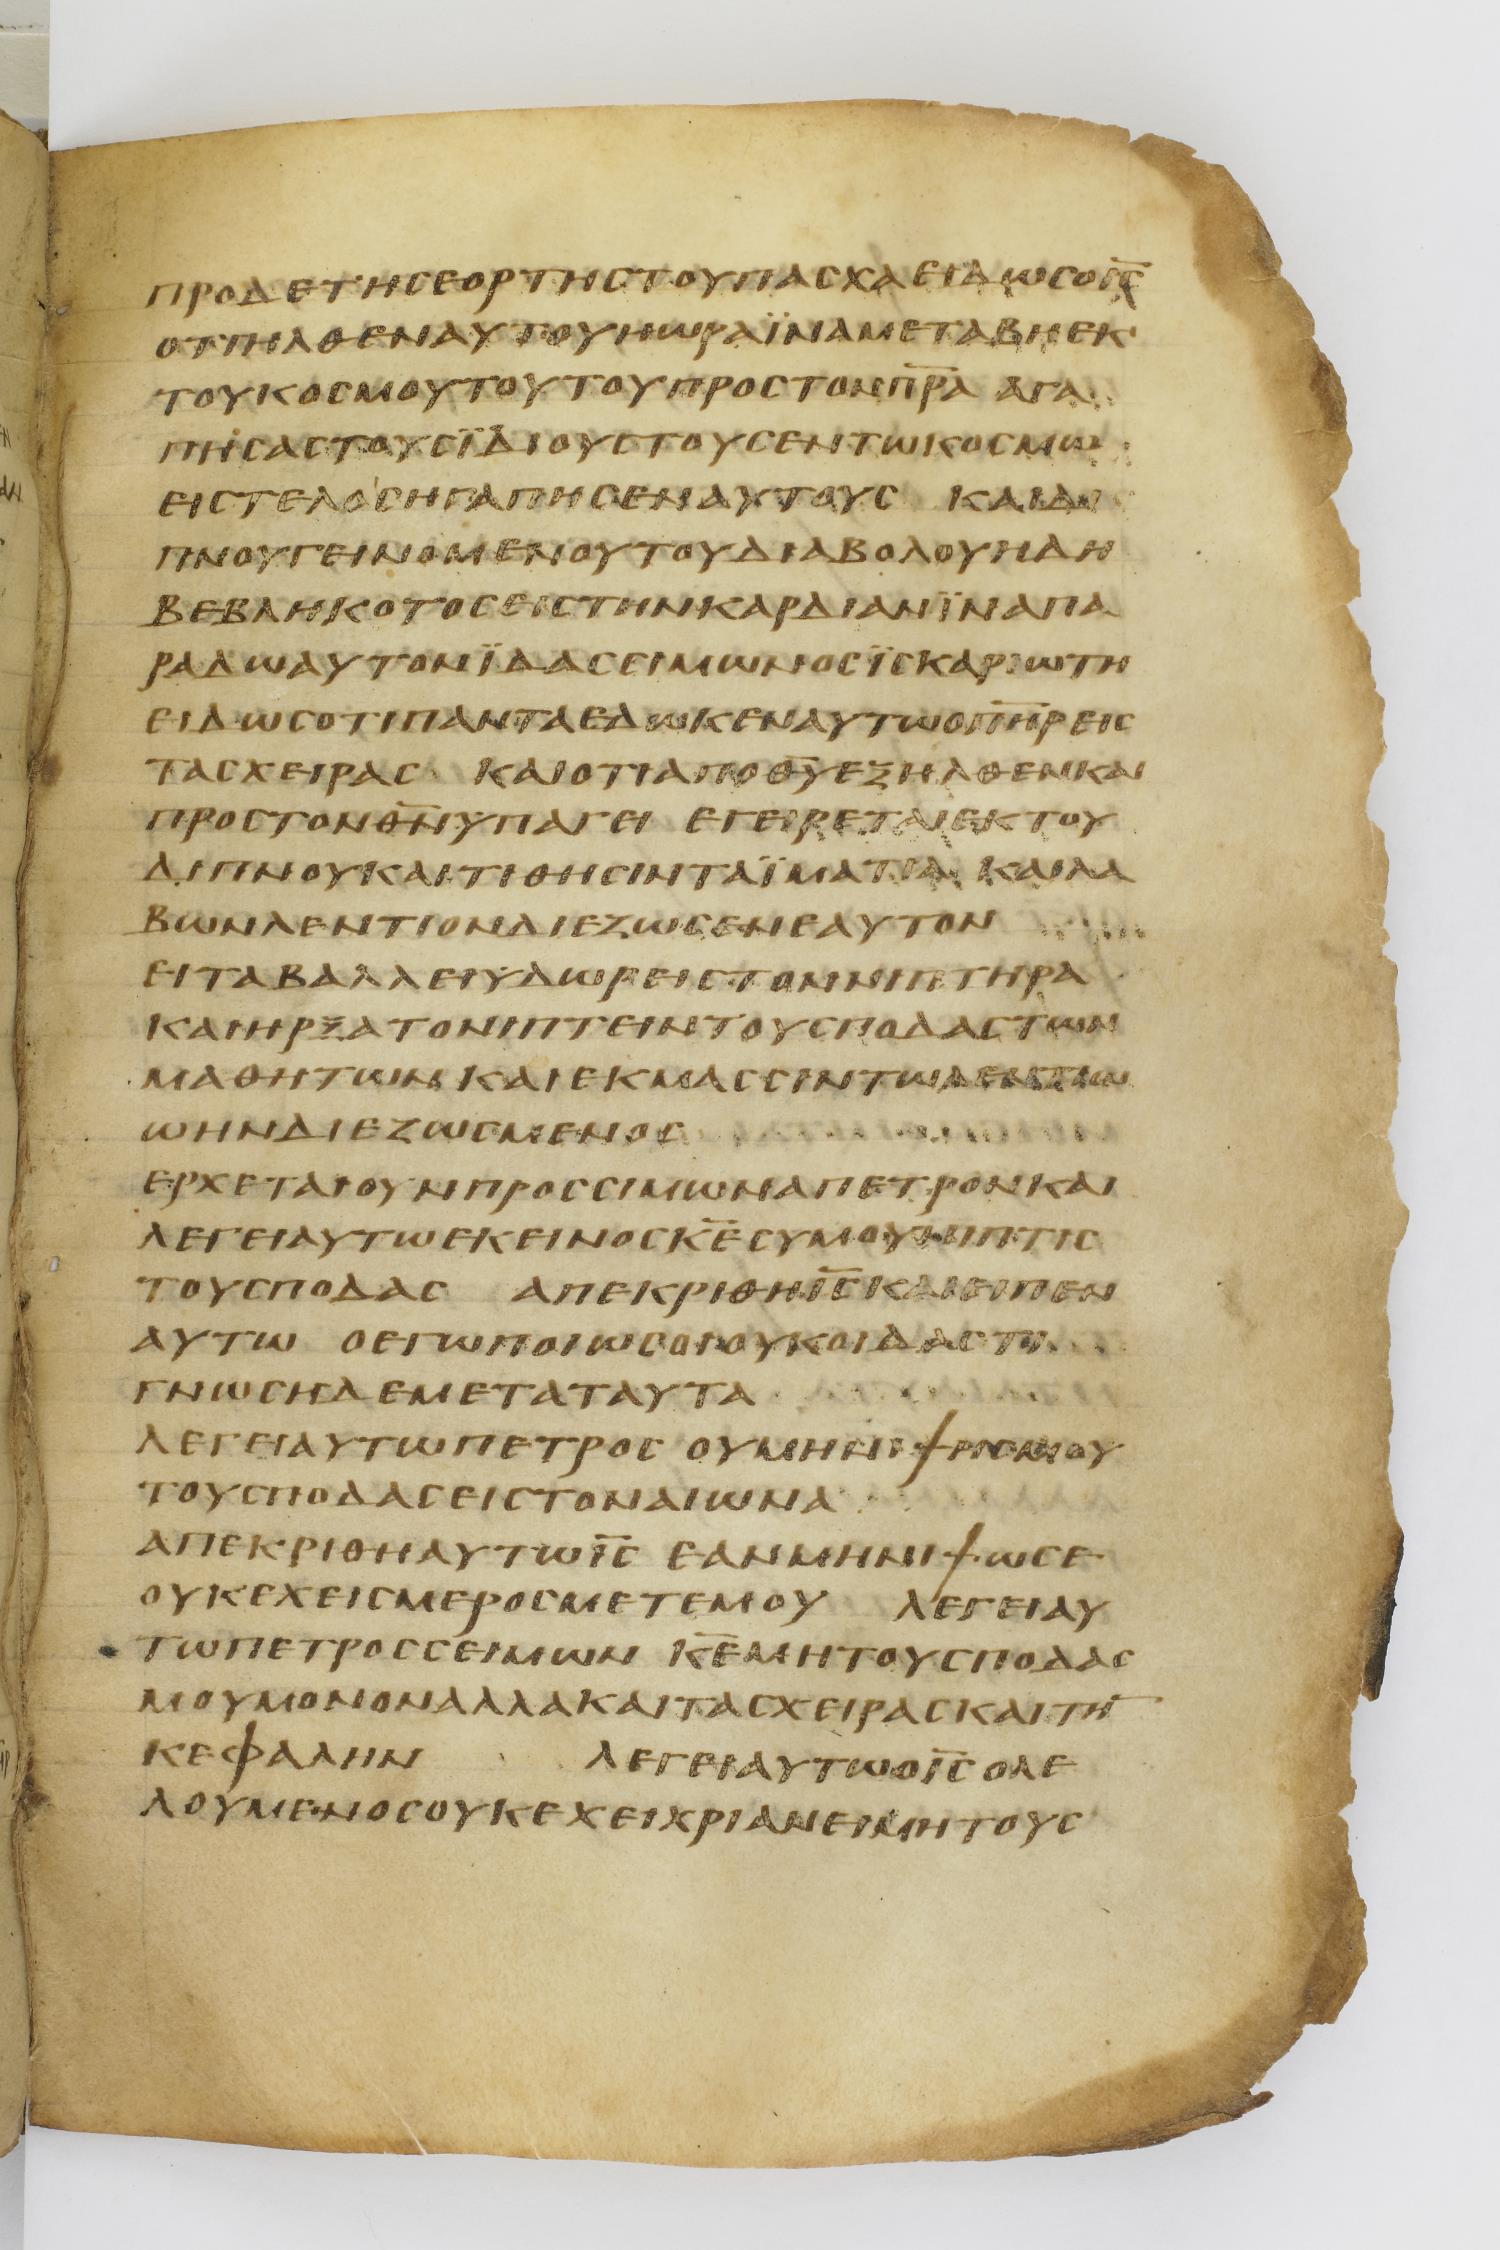 ΠΡΟΔΕΤΗСΕΟΡΤΗСΤΟΥΠΑСΧΑΕΙΔΩСΟΙ̅С̅
ΟΤΙΗΛΘΕΝΑΥΤΟΥΗΩΡΑΪΝΑΜΕΤΑΒΗΕΚ
ΤΟΥΚΟСΜΟΥΤΟΥΤΟΥΠΡΟСΤΟΝΠ̅Ρ̅Α̅ ΑΓΑ
ΠΗСΑСΤΟΥСΪΔΙΟΥСΤΟΥСΕΝΤΩΚΟСΜΩ
ΕΙСΤΕΛΟСΗΓΑΠΗСΕΝΑΥΤΟΥС ΚΑΙΔΙ
ΠΝΟΥΓΕΙΝΟΜΕΝΟΥΤΟΥΔΙΑΒΟΛΟΥΗΔΗ
ΒΕΒΛΗΚΟΤΟСΕΙСΤΗΝΚΑΡΔΙΑΝΪΝΑΠΑ
ΡΑΔΩΑΥΤΟΝΪΔΑССΕΙΜΩΝΟСΪСΚΑΡΙΩΤΗ
ΕΙΔΩСΟΤΙΠΑΝΤΑΕΔΩΚΕΝΑΥΤΩΟΠ̅Η̅Ρ̅ΕΙС
ΤΑСΧΕΙΡΑС ΚΑΙΟΤΙΑΠΟΘ̅Υ̅ΕΞΗΛΘΕΝΚΑΙ
ΠΡΟСΤΟΝΘ̅Ν̅ΥΠΑΓΕΙ ΕΓΕΙΡΕΤΑΙΕΚΤΟΥ
ΔΙΠΝΟΥΚΑΙΤΙΘΗСΙΝΤΑΪΜΑΤΙΑ ΚΑΙΛΑ
ΒΩΝΛΕΝΤΙΟΝΔΙΕΖΩСΕΝΕΑΥΤΟΝ
ΕΙΤΑΒΑΛΛΕΙΥΔΩΡΕΙСΤΟΝΝΙΠΤΗΡΑ
ΚΑΙΗΡΞΑΤΟΝΙΠΤΕΙΝΤΟΥСΠΟΔΑСΤΩΝ
ΜΑΘΗΤΩΝΚΑΙΕΚΜΑССΙΝΤΩΛΕΝΤΙΩ
ΩΗΝΔΙΕΖΩСΜΕΝΟС
ΕΡΧΕΤΑΙΟΥΝΠΡΟССΙΜΩΝΑΠΕΤΡΟΝΚΑΙ
ΛΕΓΕΙΑΥΤΩΕΚΕΙΝΟСΚ̅Ε̅СΥΜΟΥΝΙΠΤΙС
ΤΟΥСΠΟΔΑС ΑΠΕΚΡΙΘΗΙ̅С̅ΚΑΙΕΙΠΕΝ
ΑΥΤΩ ΟΕΓΩΠΟΙΩСΟΙΟΥΚΟΙΔΑС
ΓΝΩСΗΔΕΜΕΤΑΤΑΥΤΑ
ΛΕΓΕΙΑΥΤΩΠΕΤΡΟС ΟΥΜΗΝΙΨΗСΜΟΥ
ΤΟΥСΠΟΔΑСΕΙСΤΟΝΑΙΩΝΑ
ΑΠΕΚΡΙΘΗΑΥΤΩΙ̅С̅ ΕΑΝΜΗΝΙΨΩСΕ
ΟΥΚΕΧΕΙСΜΕΡΟСΜΕΤΕΜΟΥ ΛΕΓΕΙΑΥ
ΤΩΠΕΤΡΟССΕΙΜΩΝ Κ̅Ε̅ΜΗΤΟΥСΠΟΔΑС
ΜΟΥΜΟΝΟΝΑΛΛΑΚΑΙΤΑСΧΕΙΡΑСΚΑΙΤΗ̅
ΚΕΦΑΛΗΝ ΛΕΓΕΙΑΥΤΩΟΙ̅С̅ΟΛΕ
ΛΟΥΜΕΝΟСΟΥΚΕΧΕΙΧΡΙΑΝΕΙΜΗΤΟΥС